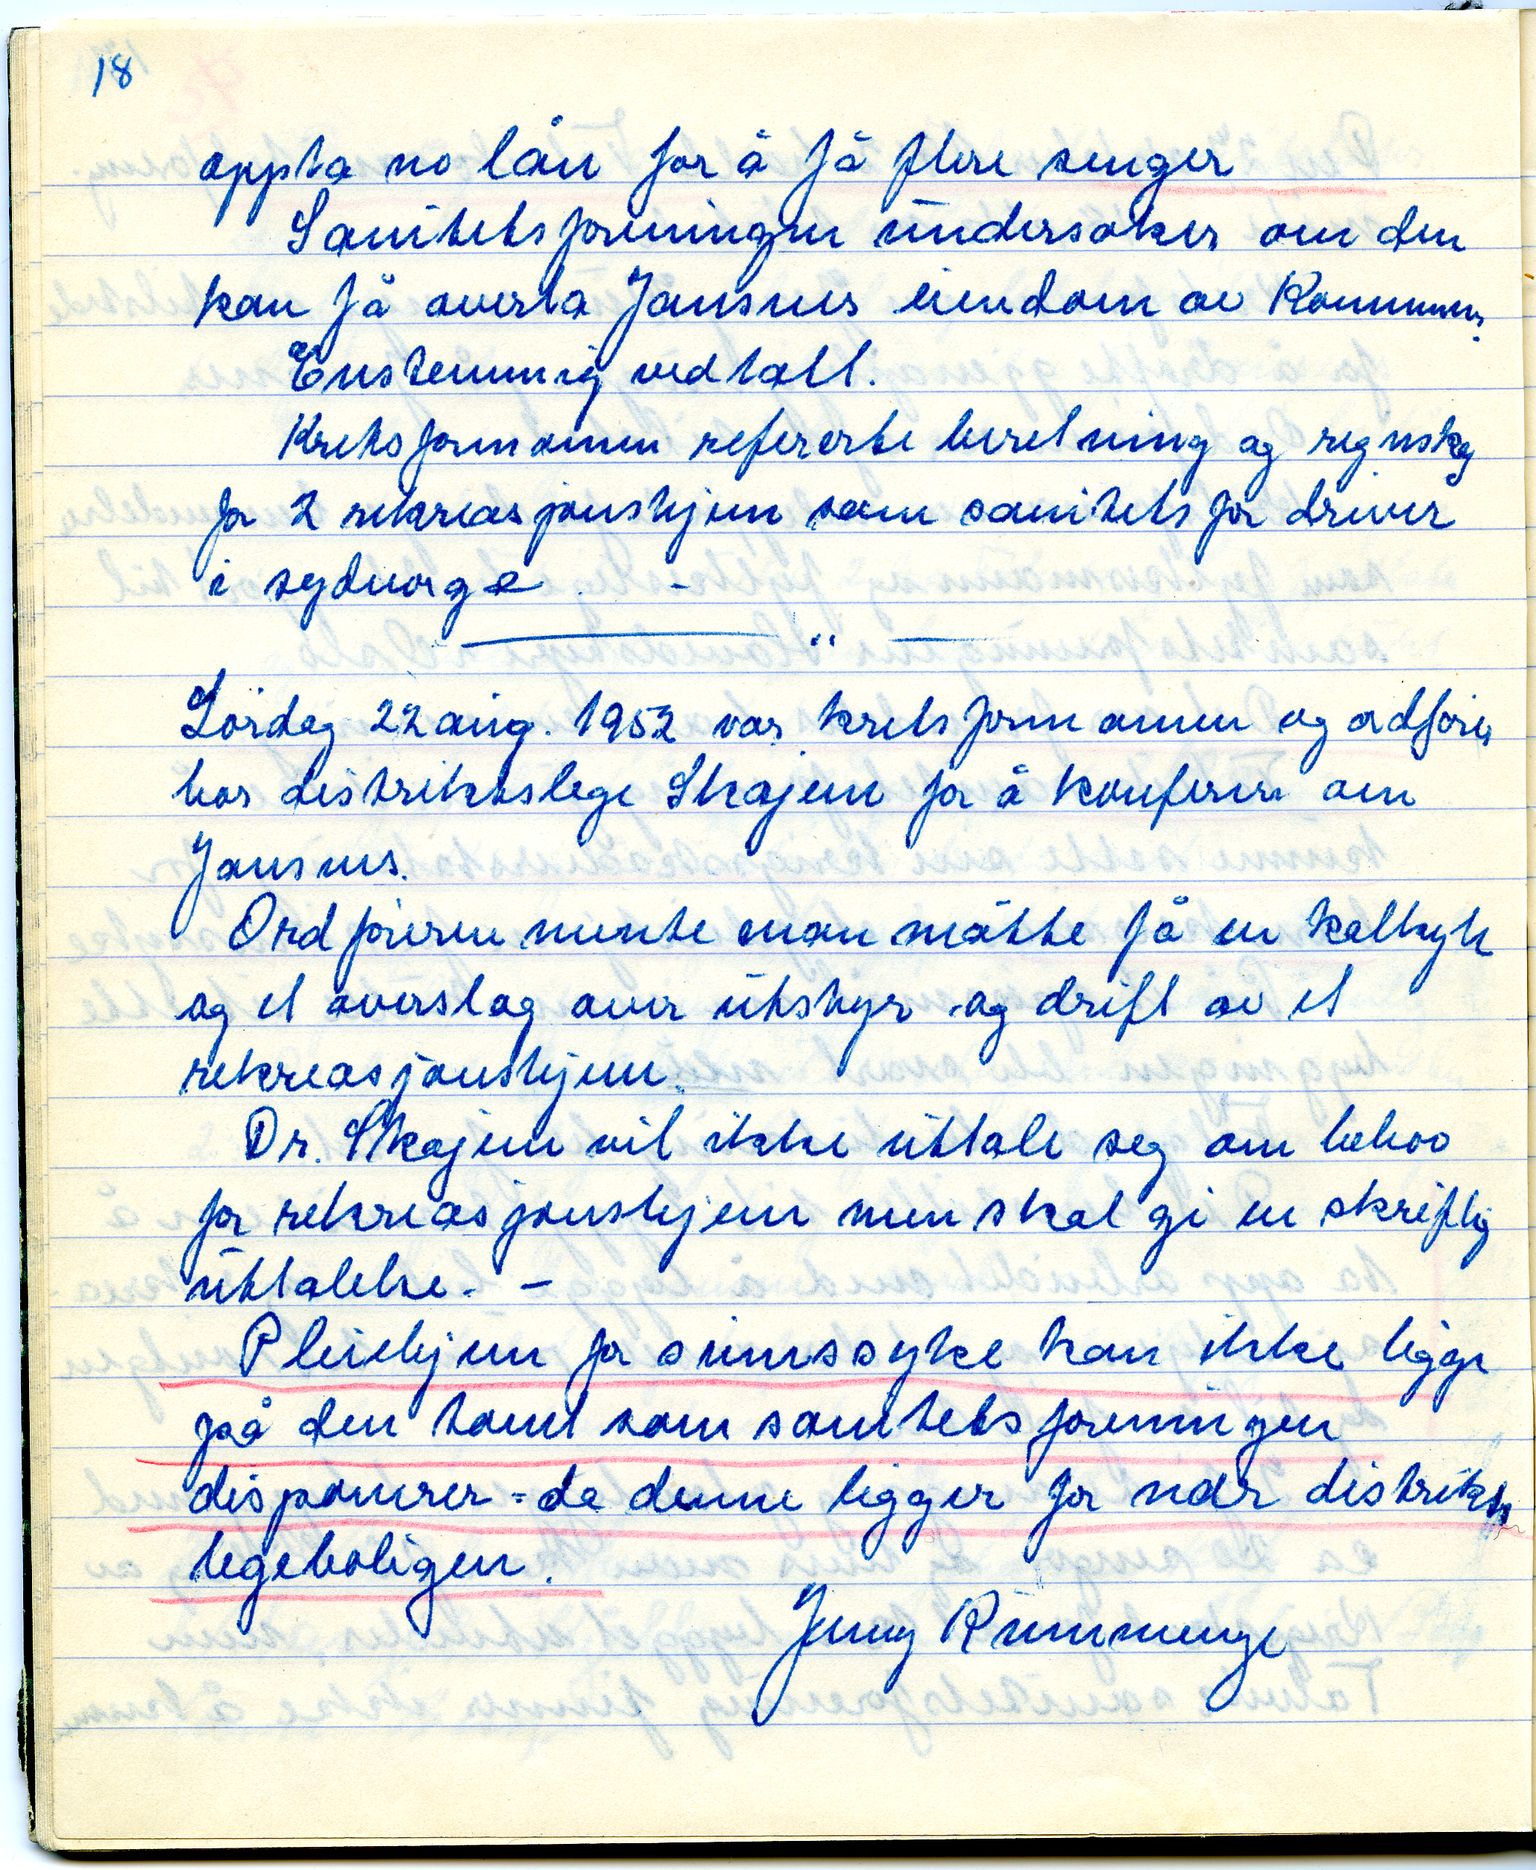 18
oppta no lån for å få flere senger
Sanitetsforeningen undersøker om den
kan få overta Jansnes eiendom av Kommunen.
Enstemmig vedtatt.
Kretsformannen refererte beretning og regnskap
for 2 rekreasjonshjem som sanitetsfor driver
i sydnorge. -
"
Lördag 22 aug. 1952 var kretsformannen og ordförer
hos distriktslege Skajem for å konferere om
Jansnes.
Ordföreren mente man måtte få en kalkyle
og et overslag over utstyr og drift av et
rekreasjonshjem.
Dr. Skajem vil ikke uttale seg om behov
for rekreasjonshjem men skal gi en skriftlig
uttalelse. -
Pleiehjem for sinnssyke kan ikke ligge
på den tomt som sanitetsforeningen
disponerer - da denne ligger for nær distrikts
legeboligen.
Jenny Rummenge